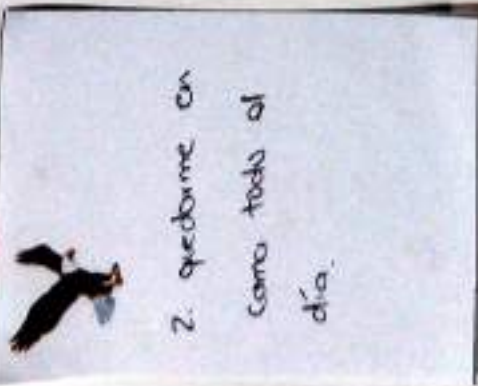 2. quedarme en
cama todo el
día.